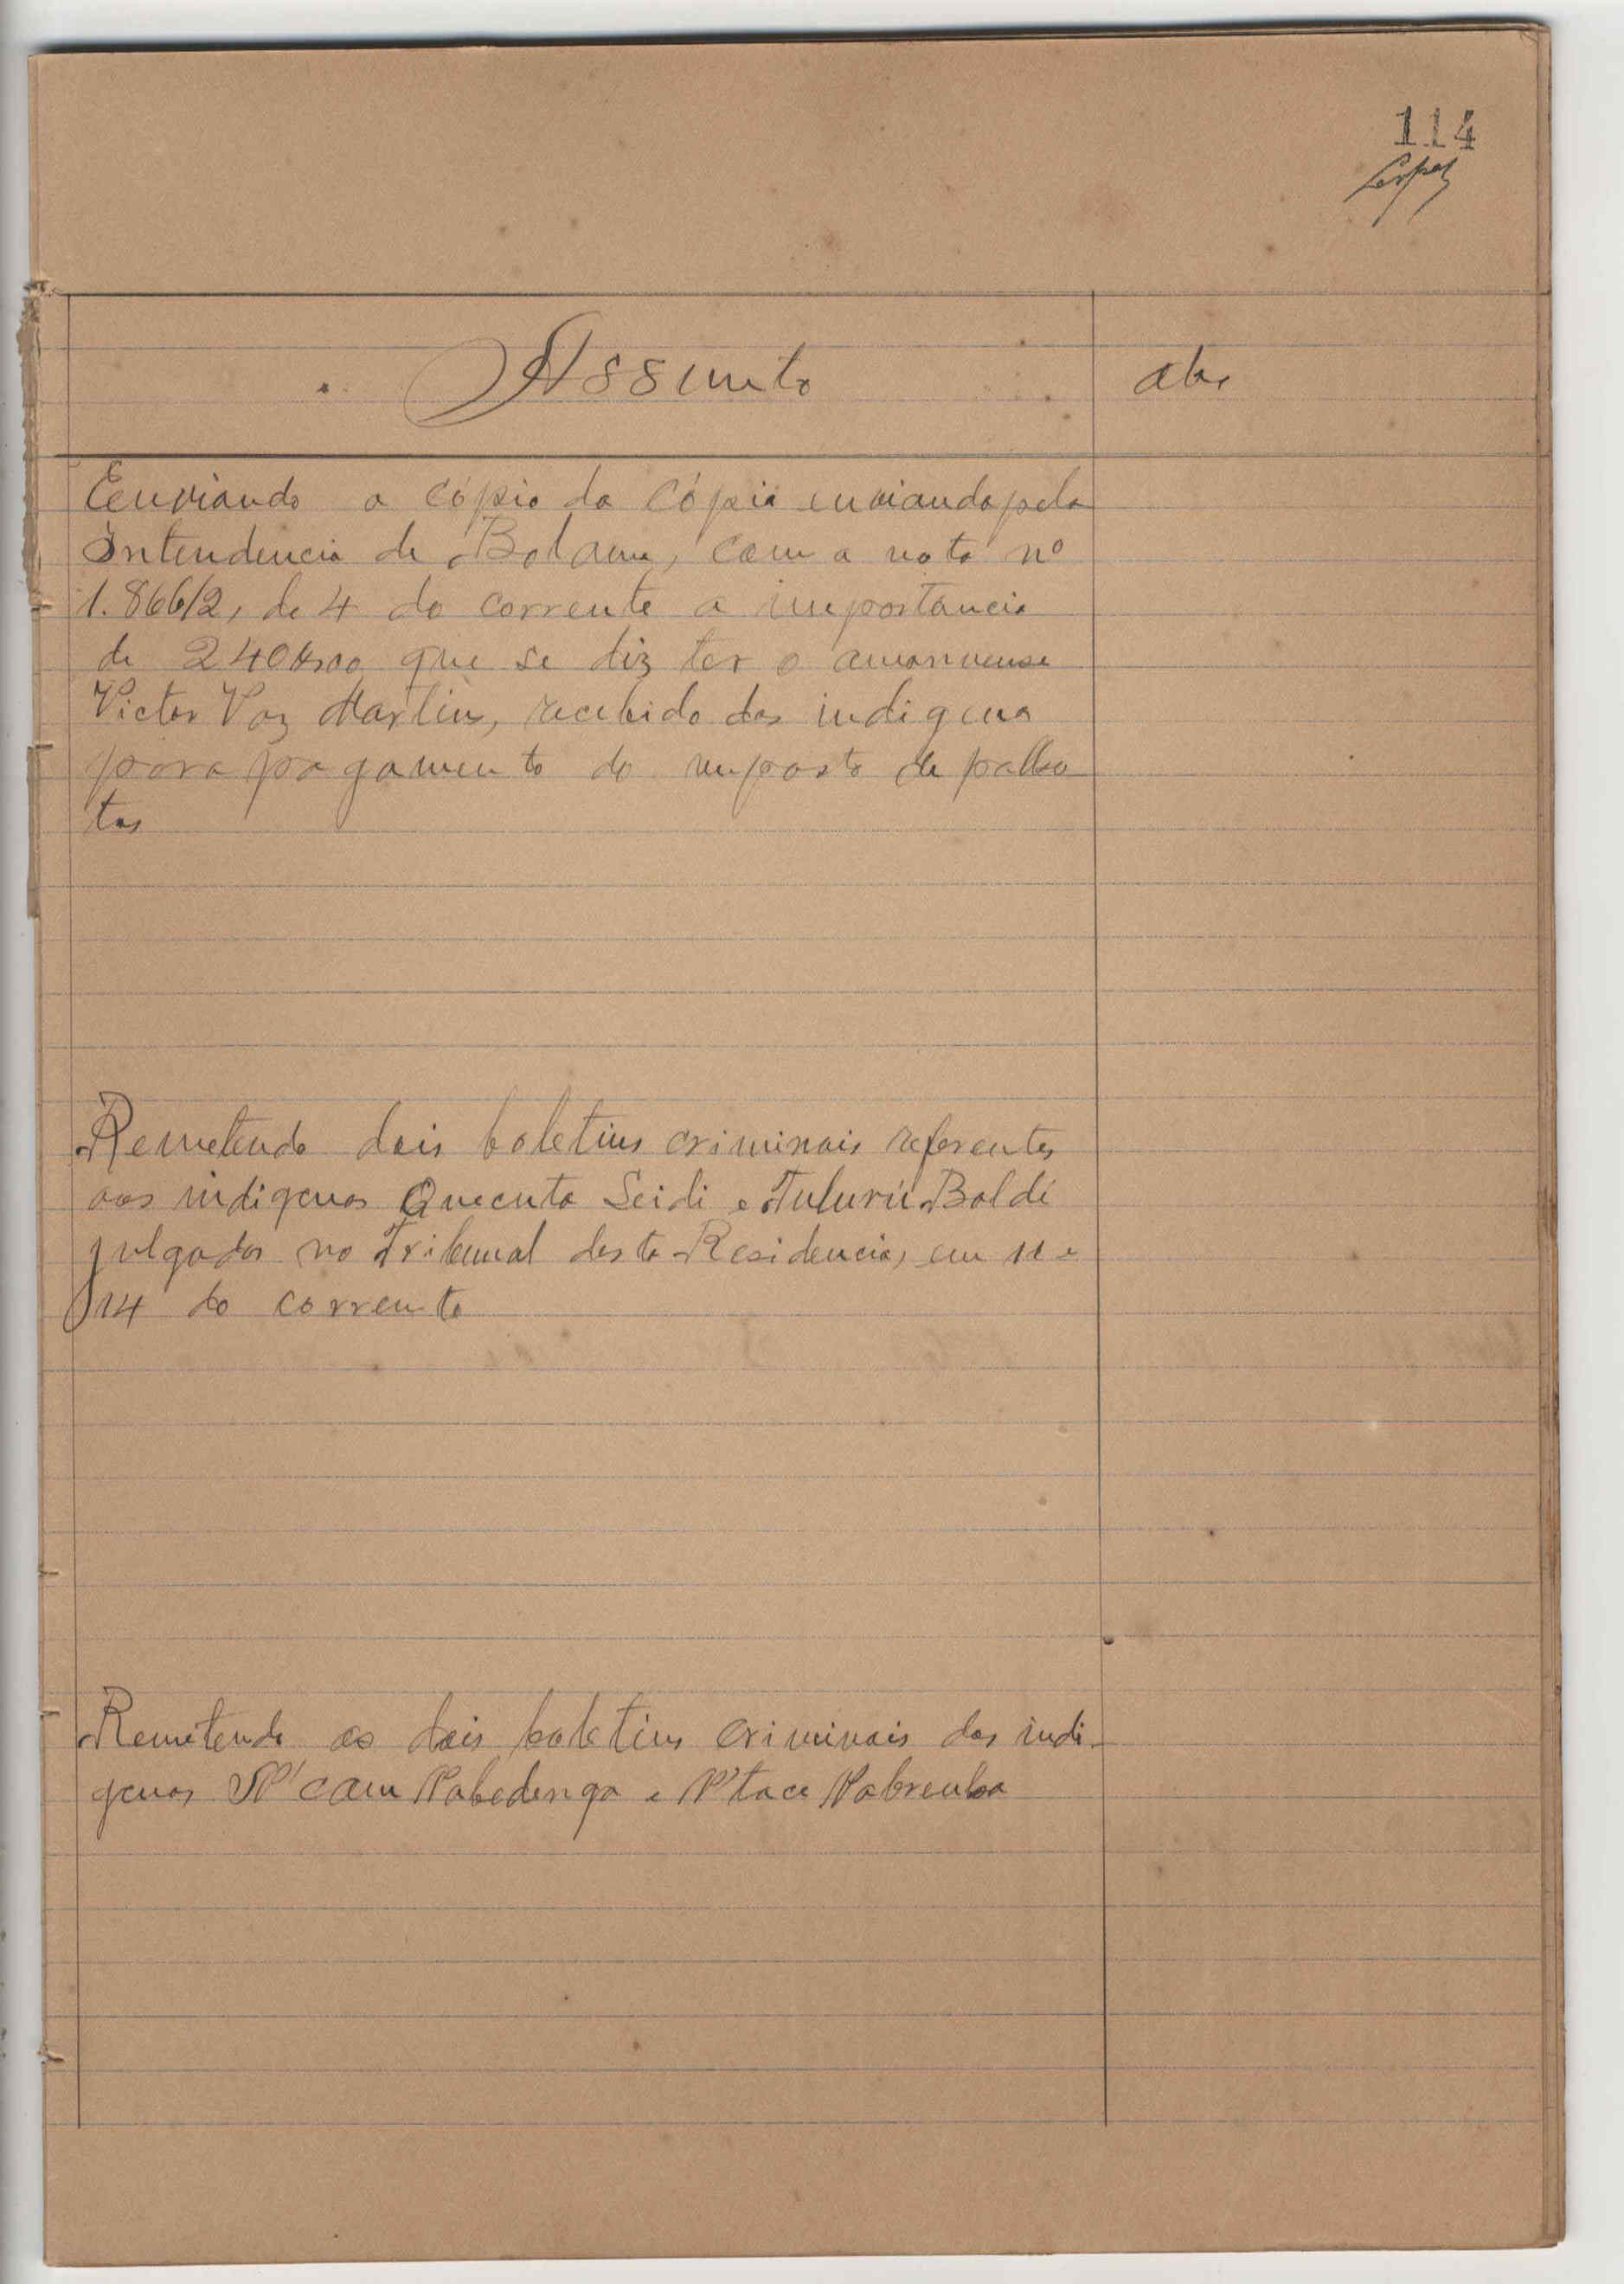 114
Lopes
Assunto
obs
Enviando a cópia da cópia envianda pela
Intendencia de Bolama, com a nota nº
1.866/2, de 4 do corrente a importáncia
de 240$00 que se diz ter o amanuense
Victor Vaz Martins, recebido dos indigena
para pagamento do imposto de palho
tas
Remetendo dois boletins criminais referentes
aos indigenas Quecuta Seidi e Tulurú Baldé
julgados no Tribunal desta Residencia, em 11 e
14 do corrente
Remetendo os dois boletins criminais dos indi-
genas N'cam Nabedenga e N'tace Nabremba